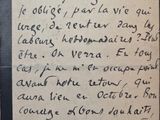 je obligé, par la vie qui
urge, de rentrer dans les
labeurs hebdomadaires ? Peut
être. On verra. En tous
cas, je ne m'en occupe point
avant notre retour, qui
aura lieu en Octobre. Bon
courage & bons souhaits,